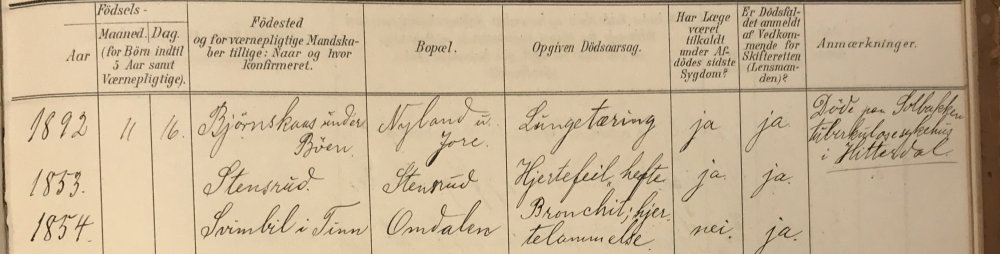 Fødsels-
Aar
Maaned. Dag.
(for Børn indtil
5 Aar samt
Værnepligtige).
Fødested
og for værnepligtige Mandska-
ber tillige: Naar og hvor
konfirmeret.
Bopæl.
Opgiven Dødsaarsag.
Har Læge
været
tilkaldt
under Af-
dødes sidste
Sygdom?
Er Dødsfal-
det anmeldt
af Vedkom-
mende for
Skifteretten
(Lensman-
den)?
Anmærkninger.
1892 11 16. Bjørnskaas under
Bøen.
Nyland u.
Jore.
Lungetæring ja ja.
Døde paa Solbakken
tuberkulosesykehus
i Hitterdal.
1853. Stensrud. Stensrud Hjertefeil, hefte ja. ja.
1854. Svimbil i Tinn Omdalen Bronchit; hjer-
telammelse. nei. ja.